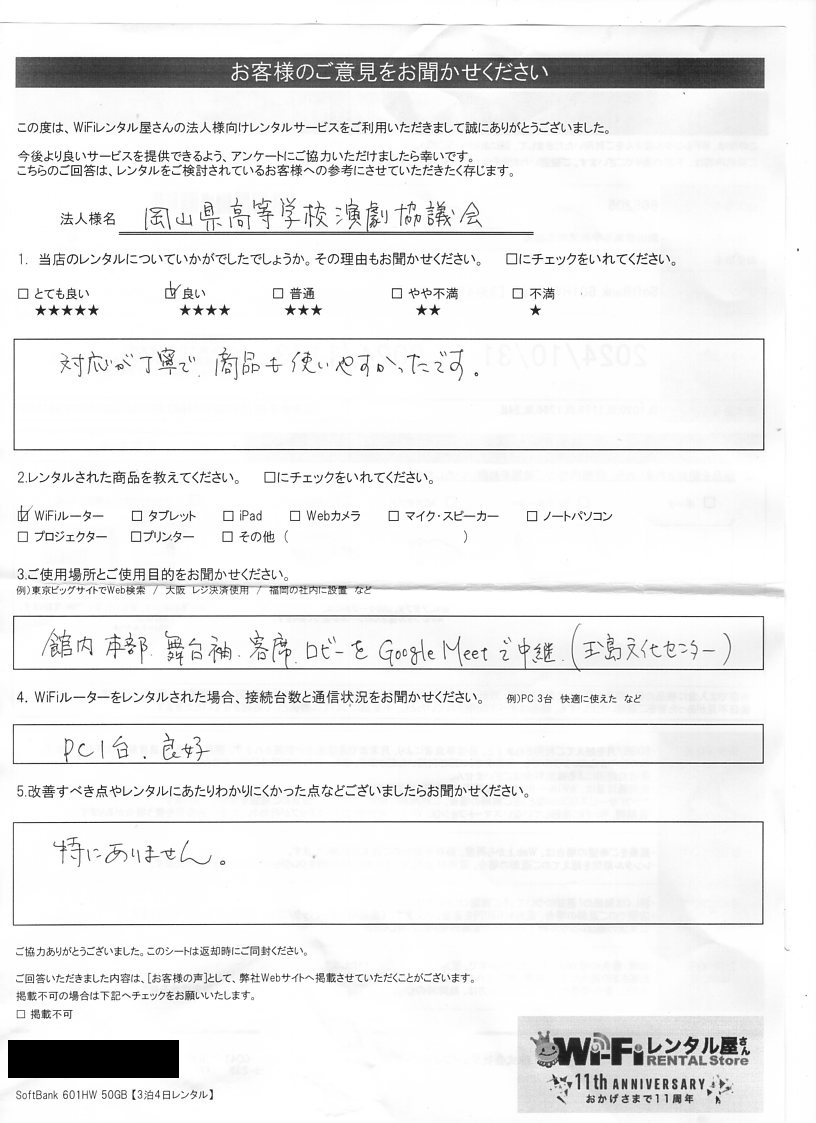 お客様のご意見をお聞かせください
この度は、WiFiレンタル屋さんの法人様向けレンタルサービスをご利用いただきまして誠にありがとうございました。
今後より良いサービスを提供できるよう、アンケートにご協力いただけましたら幸いです。
こちらのご回答は、レンタルをご検討されているお客様への参考にさせていただきたく存じます。
法人様名 岡山県高等学校演劇協議会
1. 当店のレンタルについていかがでしたでしょうか。その理由もお聞かせください。 □にチェックをいれてください。
□ とても良い ☑ 良い □ 普通 □ やや不満 □ 不満
★★★★★ ★★★★ ★★★ ★★ ★
対応が丁寧で、商品も使いやすかったです。
2.レンタルされた商品を教えてください。 □にチェックをいれてください。
☑ WiFiルーター □ タブレット □ iPad □ Webカメラ □ マイク・スピーカー □ ノートパソコン
□ プロジェクター □プリンター □ その他 ( )
3.ご使用場所とご使用目的をお聞かせください。
例)東京ビッグサイトでWeb検索 / 大阪 レジ決済使用 / 福岡の社内に設置 など
館内本部、舞台袖、客席、ロビーをGoogle Meetで中継、(玉島文化センター)
4. WiFiルーターをレンタルされた場合、接続台数と通信状況をお聞かせください。 例)PC 3台 快適に使えた など
PC1台、良好
5.改善すべき点やレンタルにあたりわかりにくかった点などございましたらお聞かせください。
特にありません。
ご協力ありがとうございました。このシートは返却時にご同封ください。
ご回答いただきました内容は、[お客様の声]として、弊社Webサイトへ掲載させていただくことがございます。
掲載不可の場合は下記へチェックをお願いいたします。
□ 掲載不可
Wi-Fiレンタル屋さん
RENTAL Store
11th ANNIVERSARY
おかげさまで11周年
SoftBank 601HW 50GB【3泊4日レンタル】